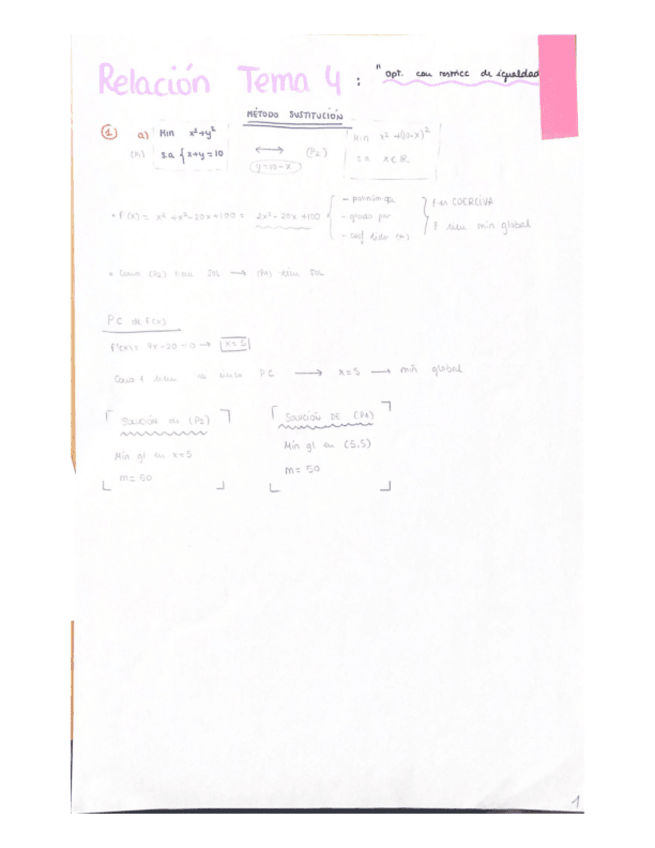 Relación Tema 4 : "Opt. con restricc de igualdad
MÉTODO SUSTITUCIÓN
① a) Min x²+y² Min x²+(10-x)²
(P1) s.a { x+y=10 ⟷ (P2) s.a x∈ℝ
y=10-x
• f(x) = x²+x²-20x+100 = 2x²-20x+100 { - polinómica } f es COERCIVA
- grado par f tiene min global
- coef líder (+)
• Como (P2) tiene SOL → (P1) tiene SOL
PC de f(x)
f'(x) = 4x-20=0 → x=5
Como f tiene un único PC → x=5 → min global
SOLUCIÓN DE (P2) SOLUCIÓN DE (P1)
Min gl en x=5 Min gl en (5,5)
m= 50 m= 50
1